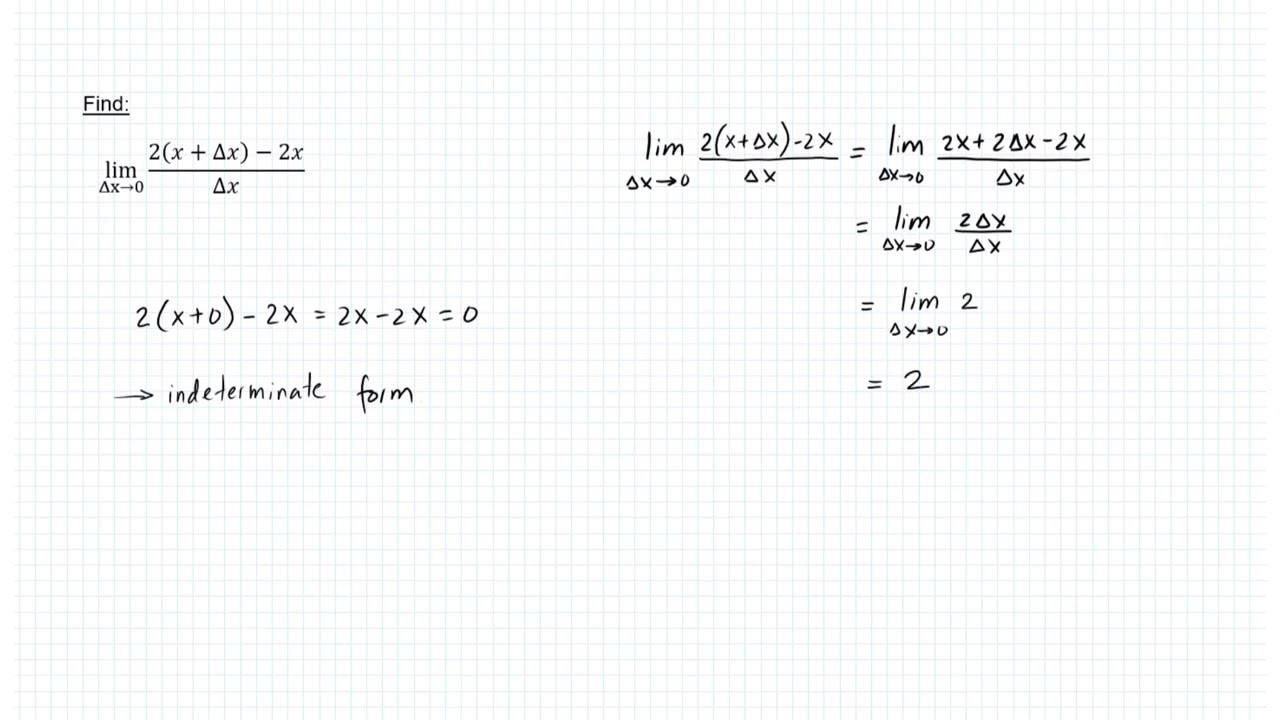 Find:
lim Δx→0 2(x + Δx) − 2x / Δx
2(x+0) - 2x = 2x-2x = 0
→ indeterminate form
lim Δx→0 2(x+Δx)-2x / Δx = lim Δx→0 2x+2Δx-2x / Δx
= lim Δx→0 2Δx / Δx
= lim Δx→0 2
= 2